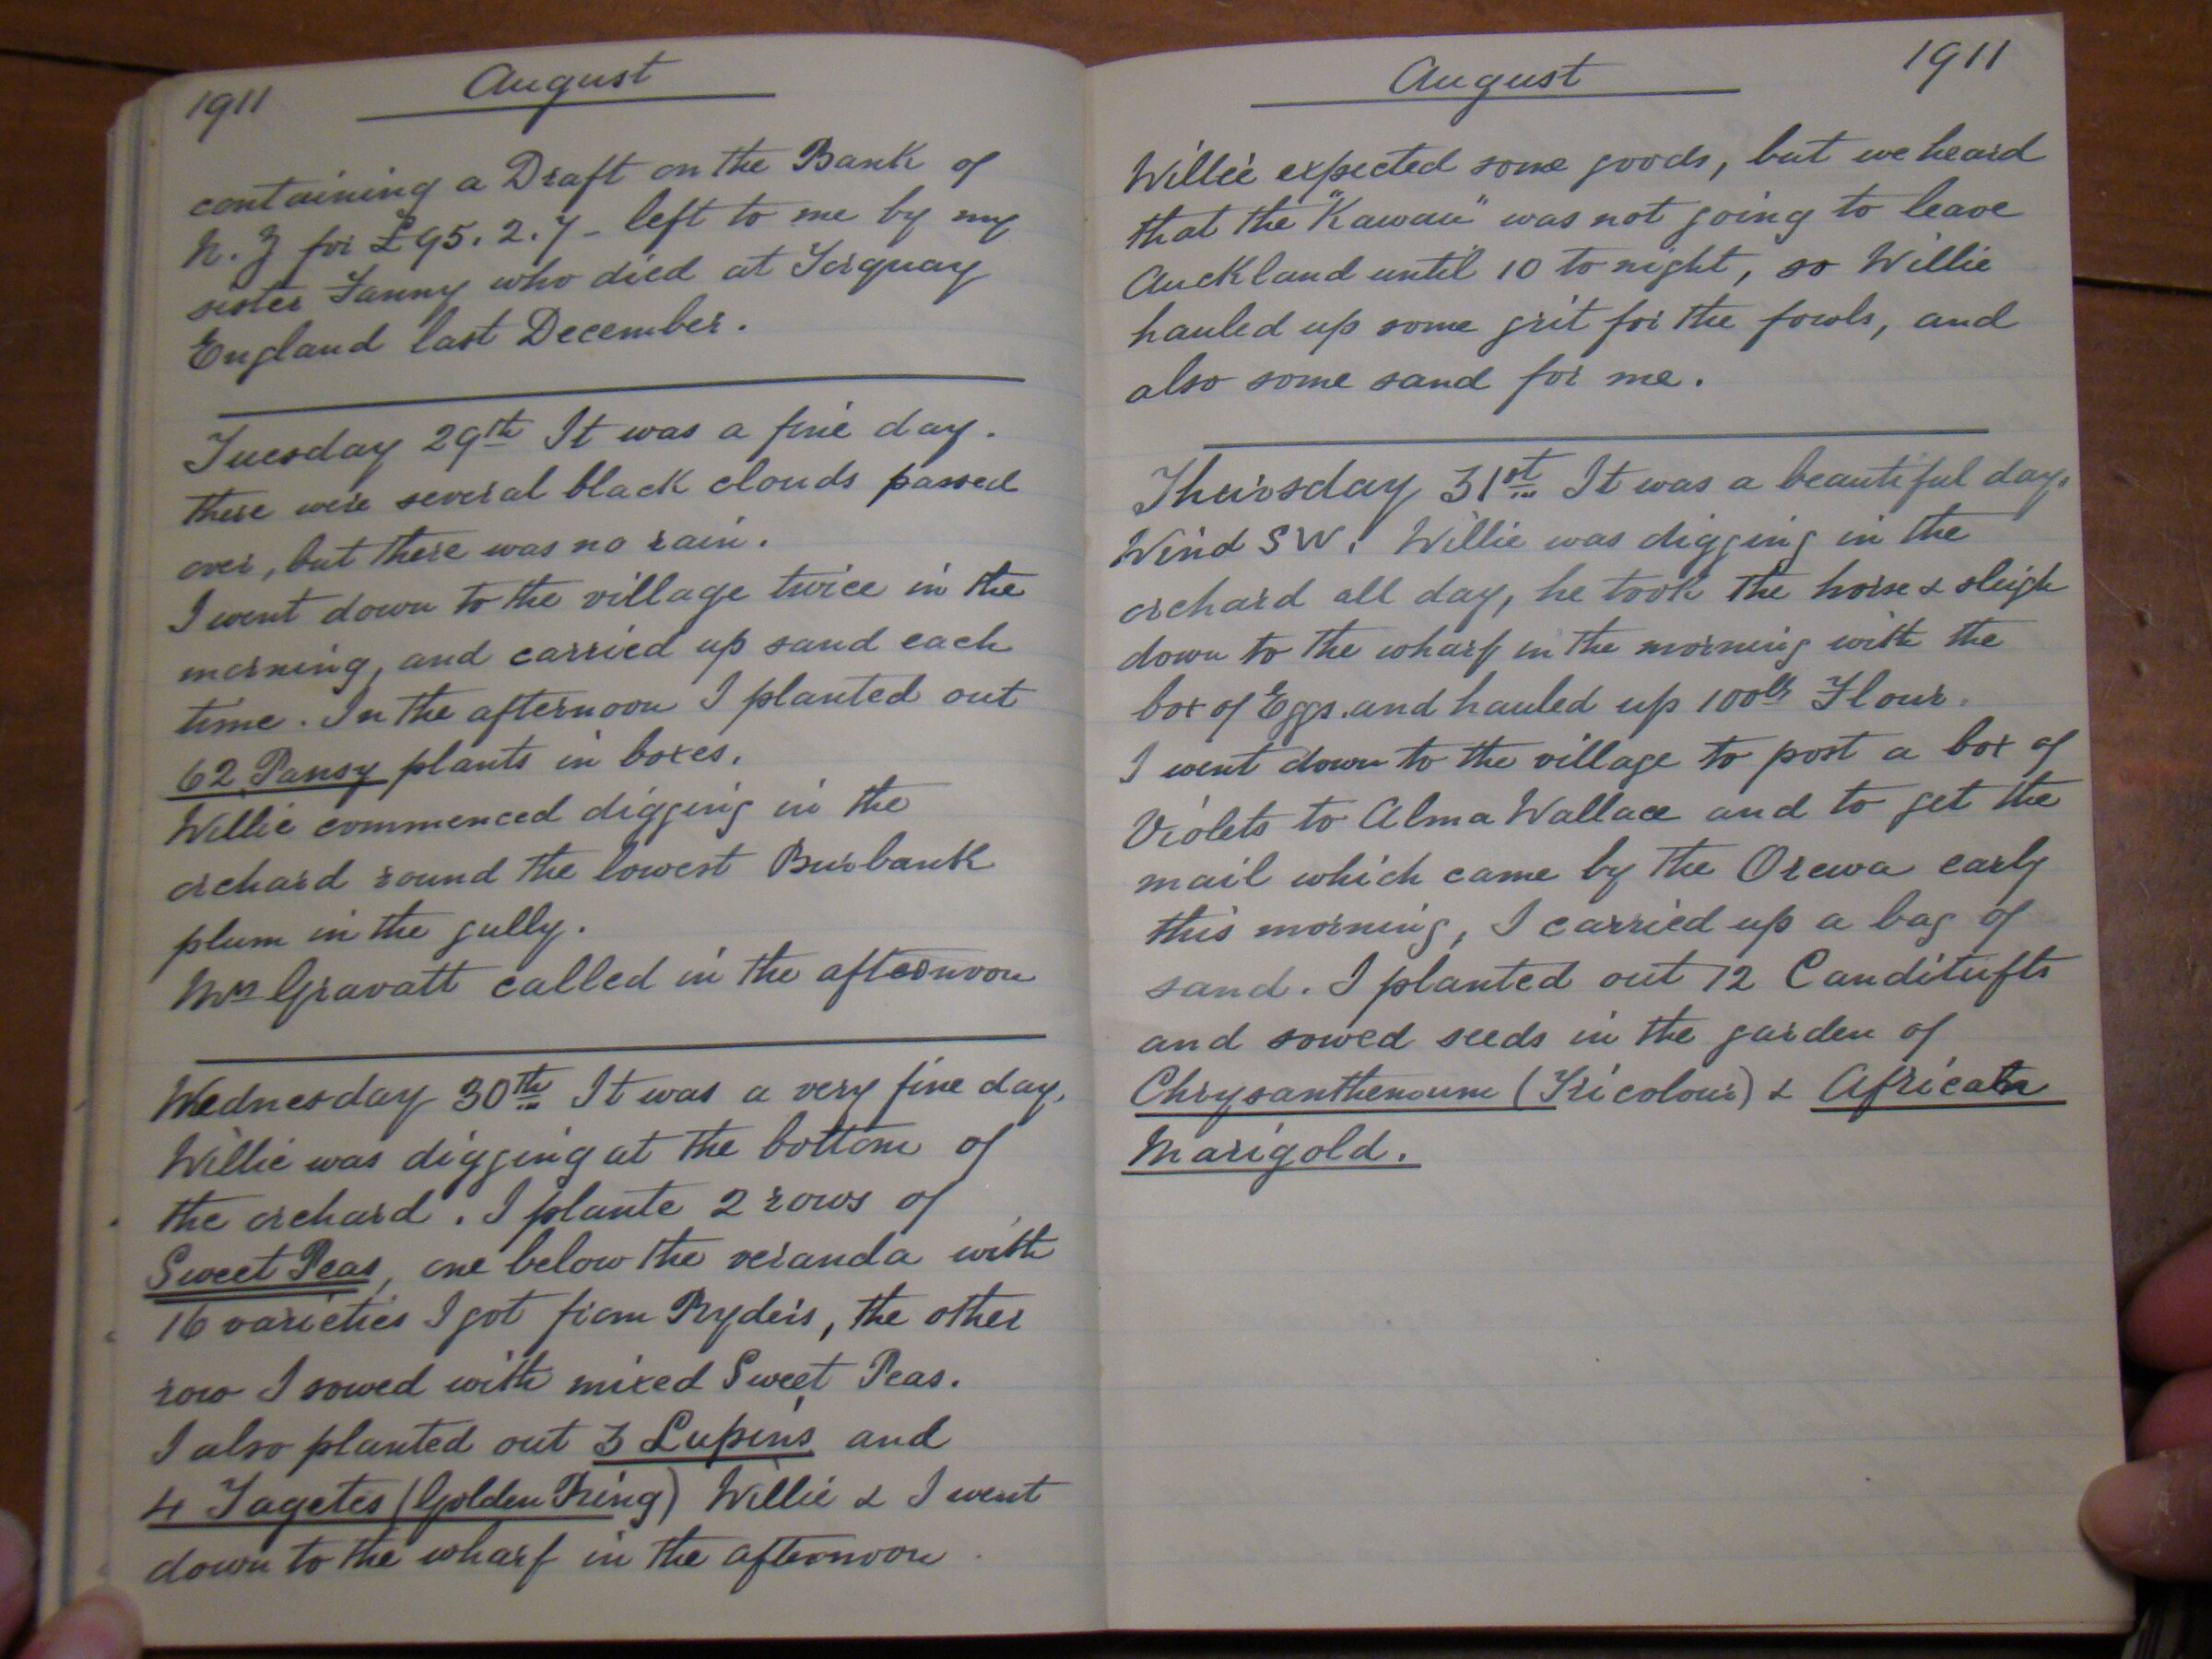 1911 August
containing a Draft on the Bank of
N. Z for £95. 2. 7 - left to me by my
sister Fanny who died at Torquay
England last December.
Tuesday 29th It was a fine day.
there were several black clouds passed
over, but there was no rain.
I went down to the village twice in the
morning, and carried up sand each
time. In the afternoon I planted out
62 Pansy plants in boxes.
Willie commenced digging in the
orchard round the lowest Burbank
plum in the gully.
Mrs Gravatt called in the afternoon
Wednesday 30th It was a very fine day.
Willie was digging at the bottom of
the orchard. I plante 2 rows of
Sweet Peas, one below the veranda with
16 varieties I got from Ryders, the other
row I sowed with mixed Sweet Peas.
I also planted out 3 Lupins and
4 Tagetes (Golden Ring) Willie & I went
down to the wharf in the afternoon
August 1911
Willie expected some goods, but we heard
that the "Kawau" was not going to leave
Auckland until 10 to night, so Willie
hauled up some grit for the fowls, and
also some sand for me.
Thursday 31st It was a beautiful day.
Wind SW. Willie was digging in the
orchard all day, he took the horse & sleigh
down to the wharf in the morning with the
box of Eggs. and hauled up 100lb Flour.
I went down to the village to post a box of
Violets to Alma Wallace and to get the
mail which came by the Orewa early
this morning, I carried up a bag of
sand. I planted out 12 Canditufts
and sowed seeds in the garden of
Chrysanthemum (Tricolour) & African
Marigold.